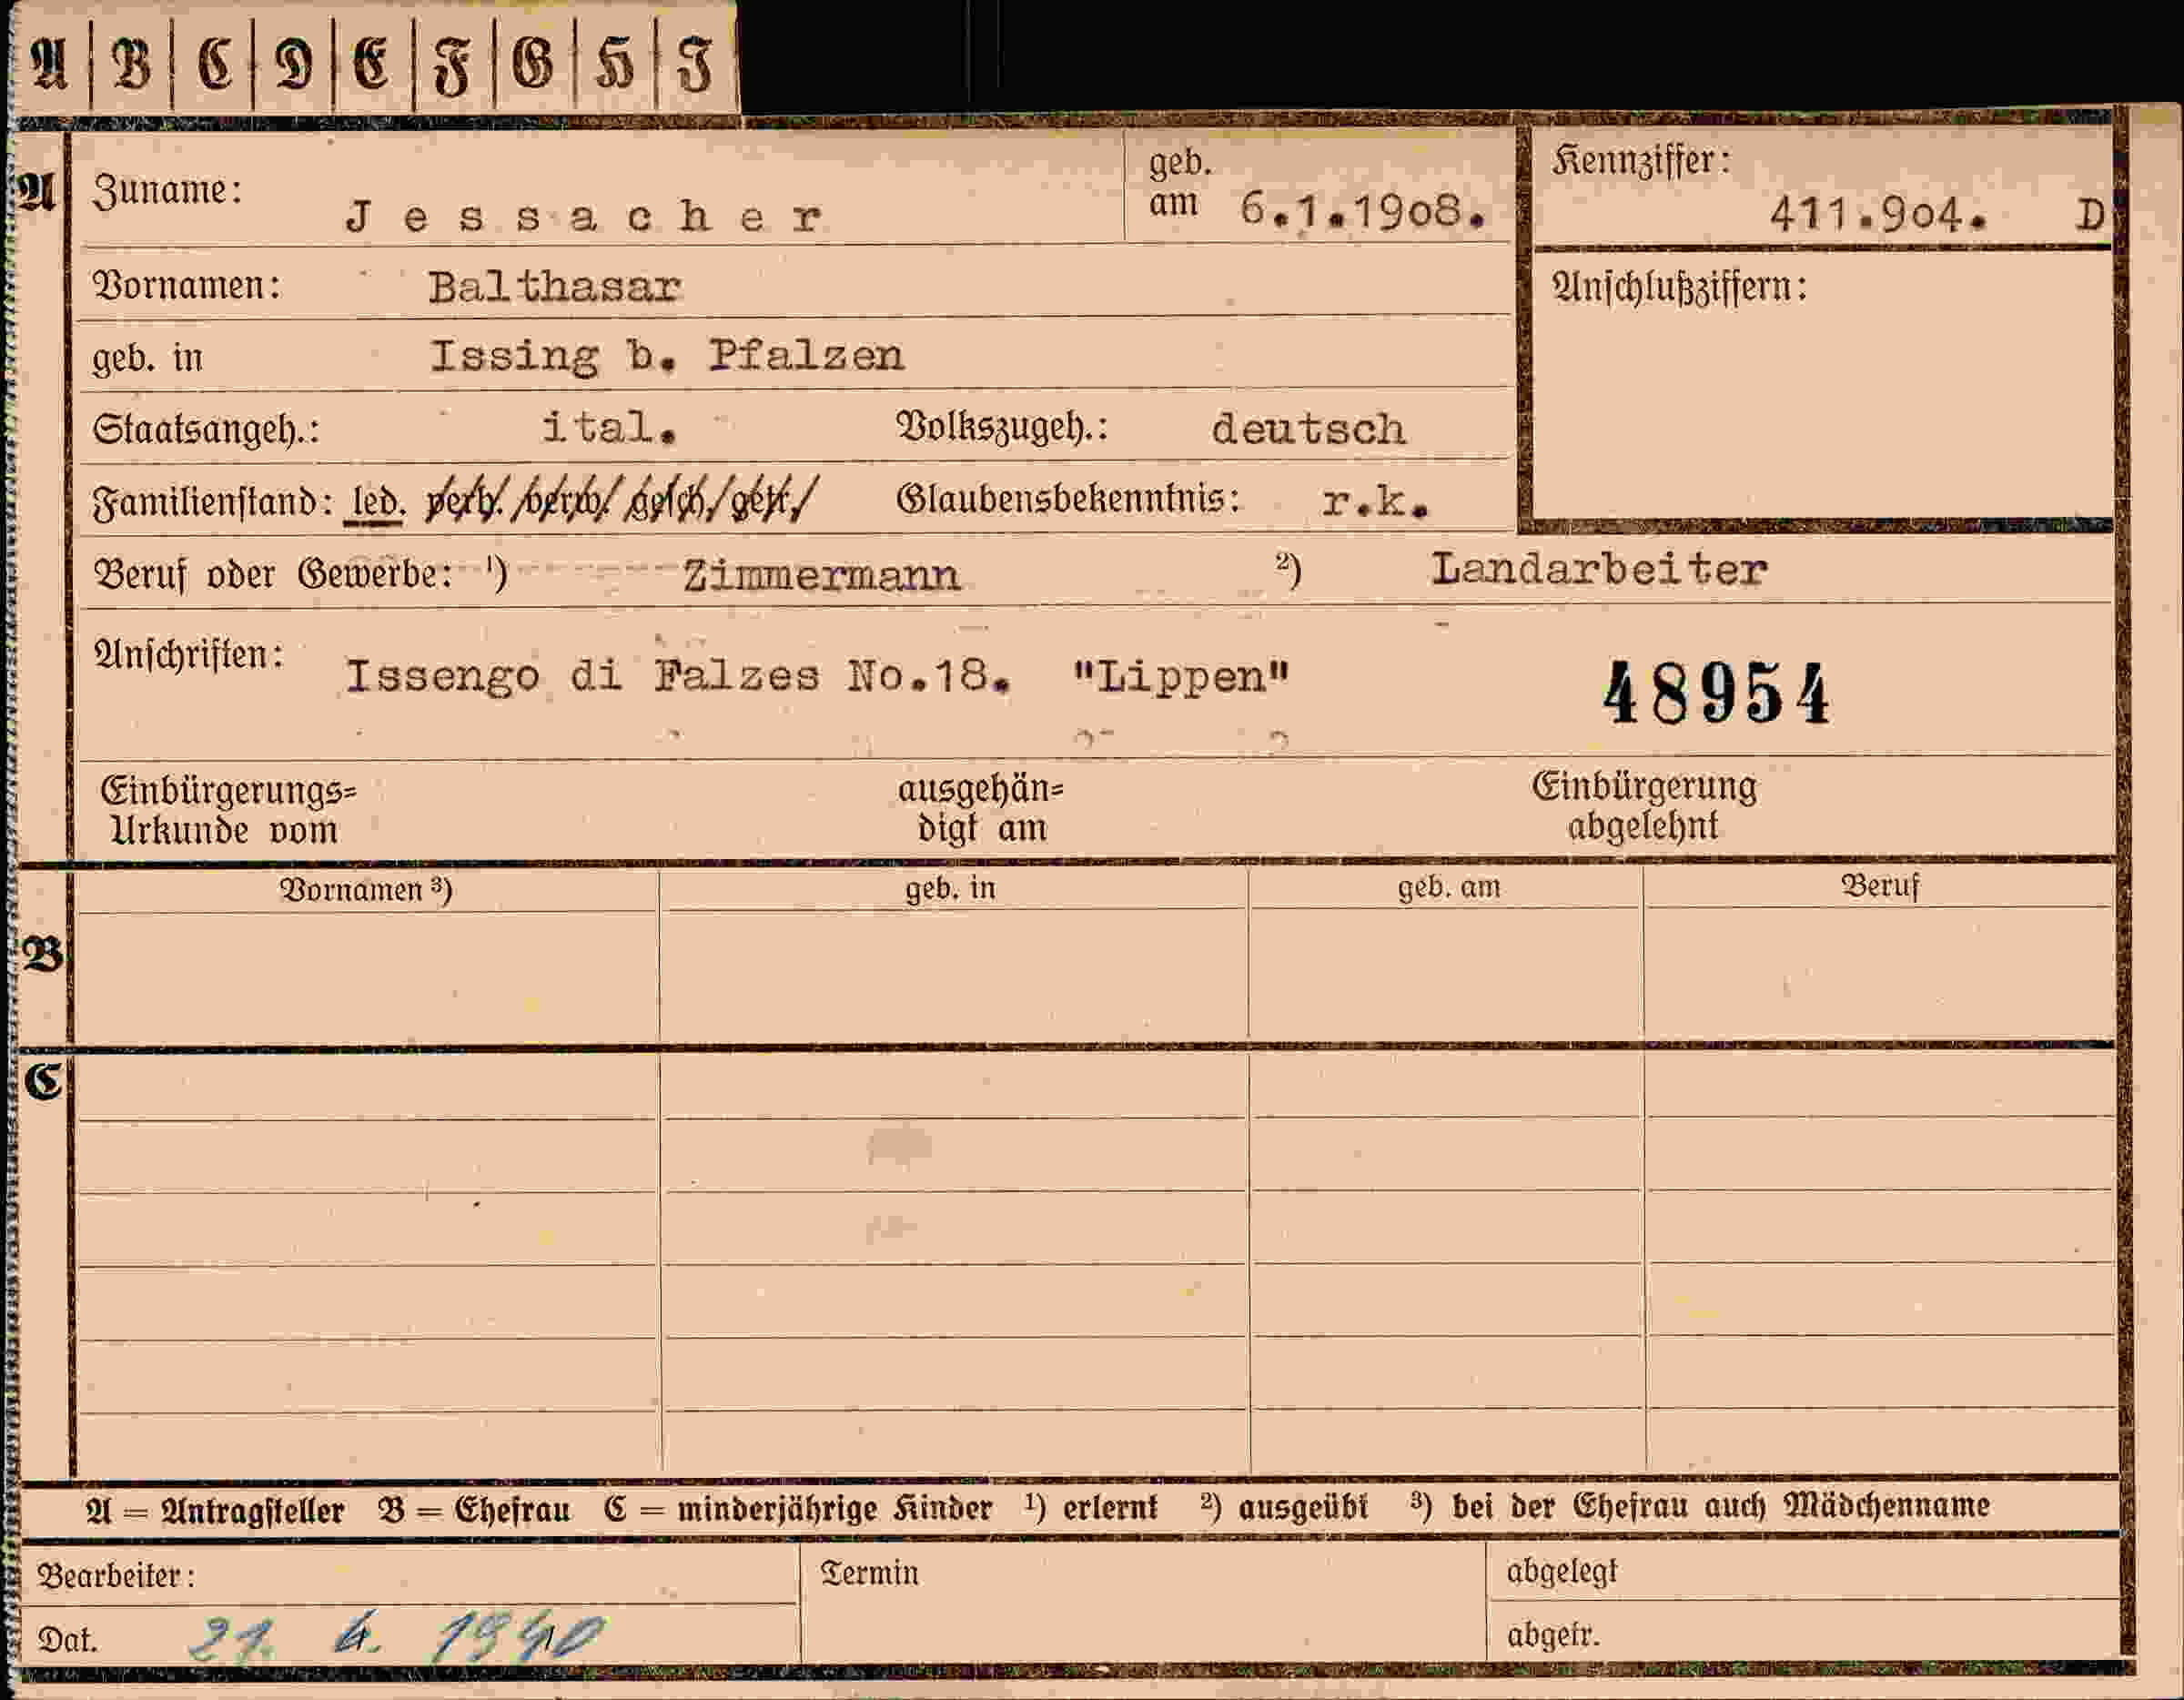 A | B | C | D | E | F | G | H | J
A Zuname: Jessacher geb. am 6.1.19o8. Kennziffer: 411.9o4. D
Vornamen: Balthasar Anschlußziffern:
geb. in Issing b. Pfalzen
Staatsangeh.: ital. Volkszugeh.: deutsch
Familienstand: led. verh./verw./gesch/getr./ Glaubensbekenntnis: r.k.
Beruf oder Gewerbe: ¹) Zimmermann ²) Landarbeiter
Anschriften: Issengo di Falzes No.18. "Lippen" 48954
Einbürgerungs= ausgehän= Einbürgerung
Urkunde vom digt am abgelehnt
Vornamen ³) geb. in geb. am Beruf
B
C
A = Antragsteller B = Ehefrau C = minderjährige Kinder ¹) erlernt ²) ausgeübt ³) bei der Ehefrau auch Mädchenname
Bearbeiter: Termin abgelegt
Dat. 21. 6. 1940 abgetr.